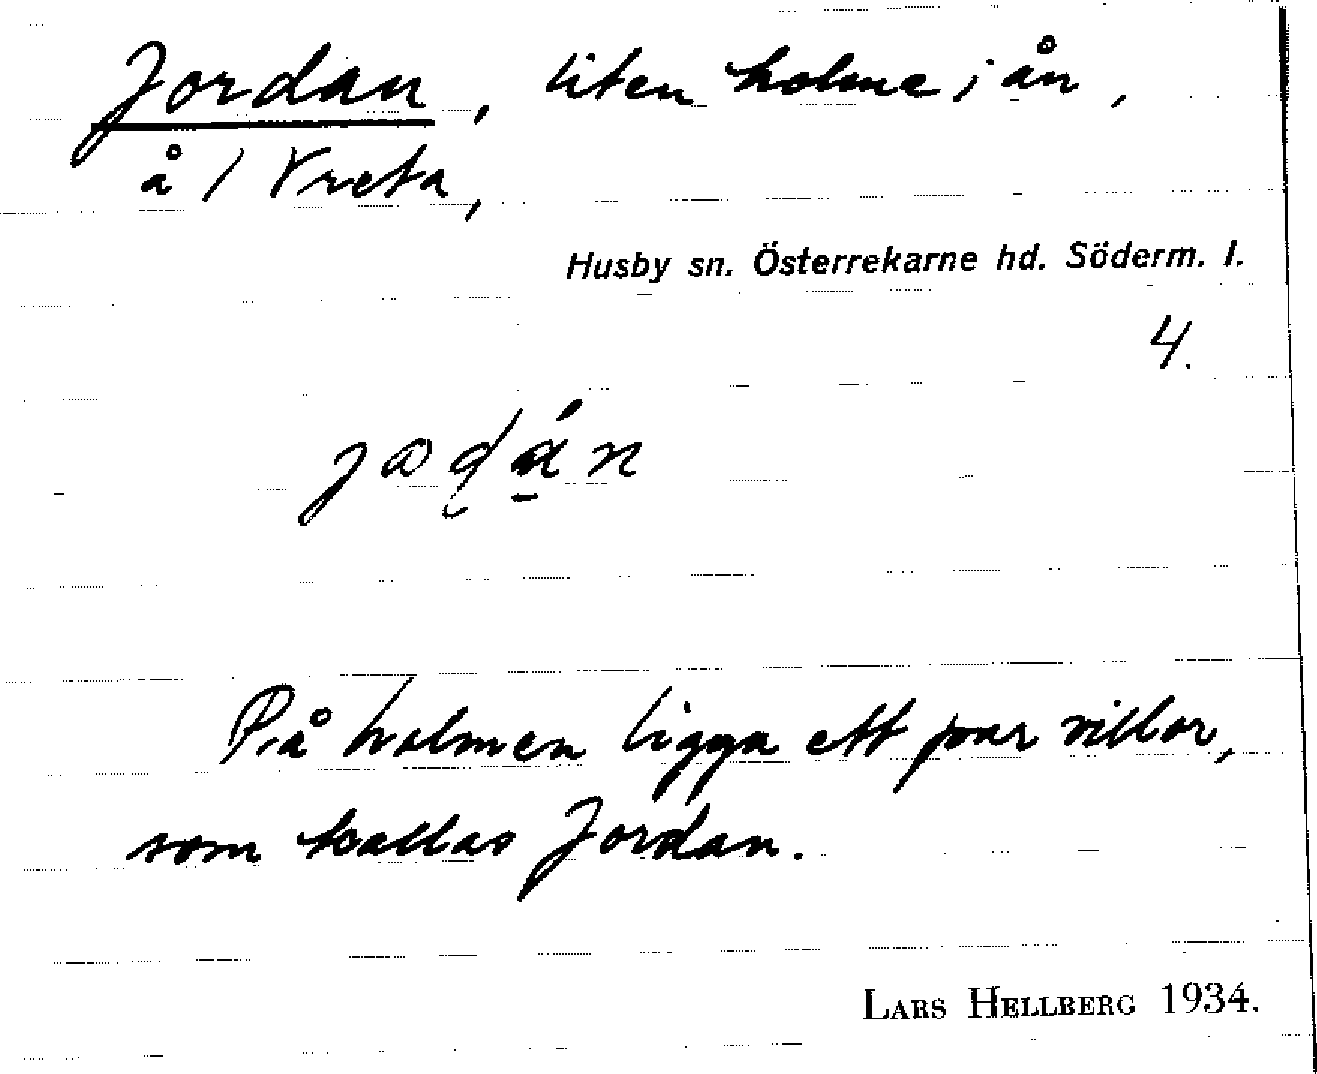 Jordan, liten holme i ån,
å / Vreta,
Husby sn. Österrekarne hd. Söderm. l.
4.
På holmen ligga ett par villor,
som kallas Jordan.
LARS HELLBERG 1934.